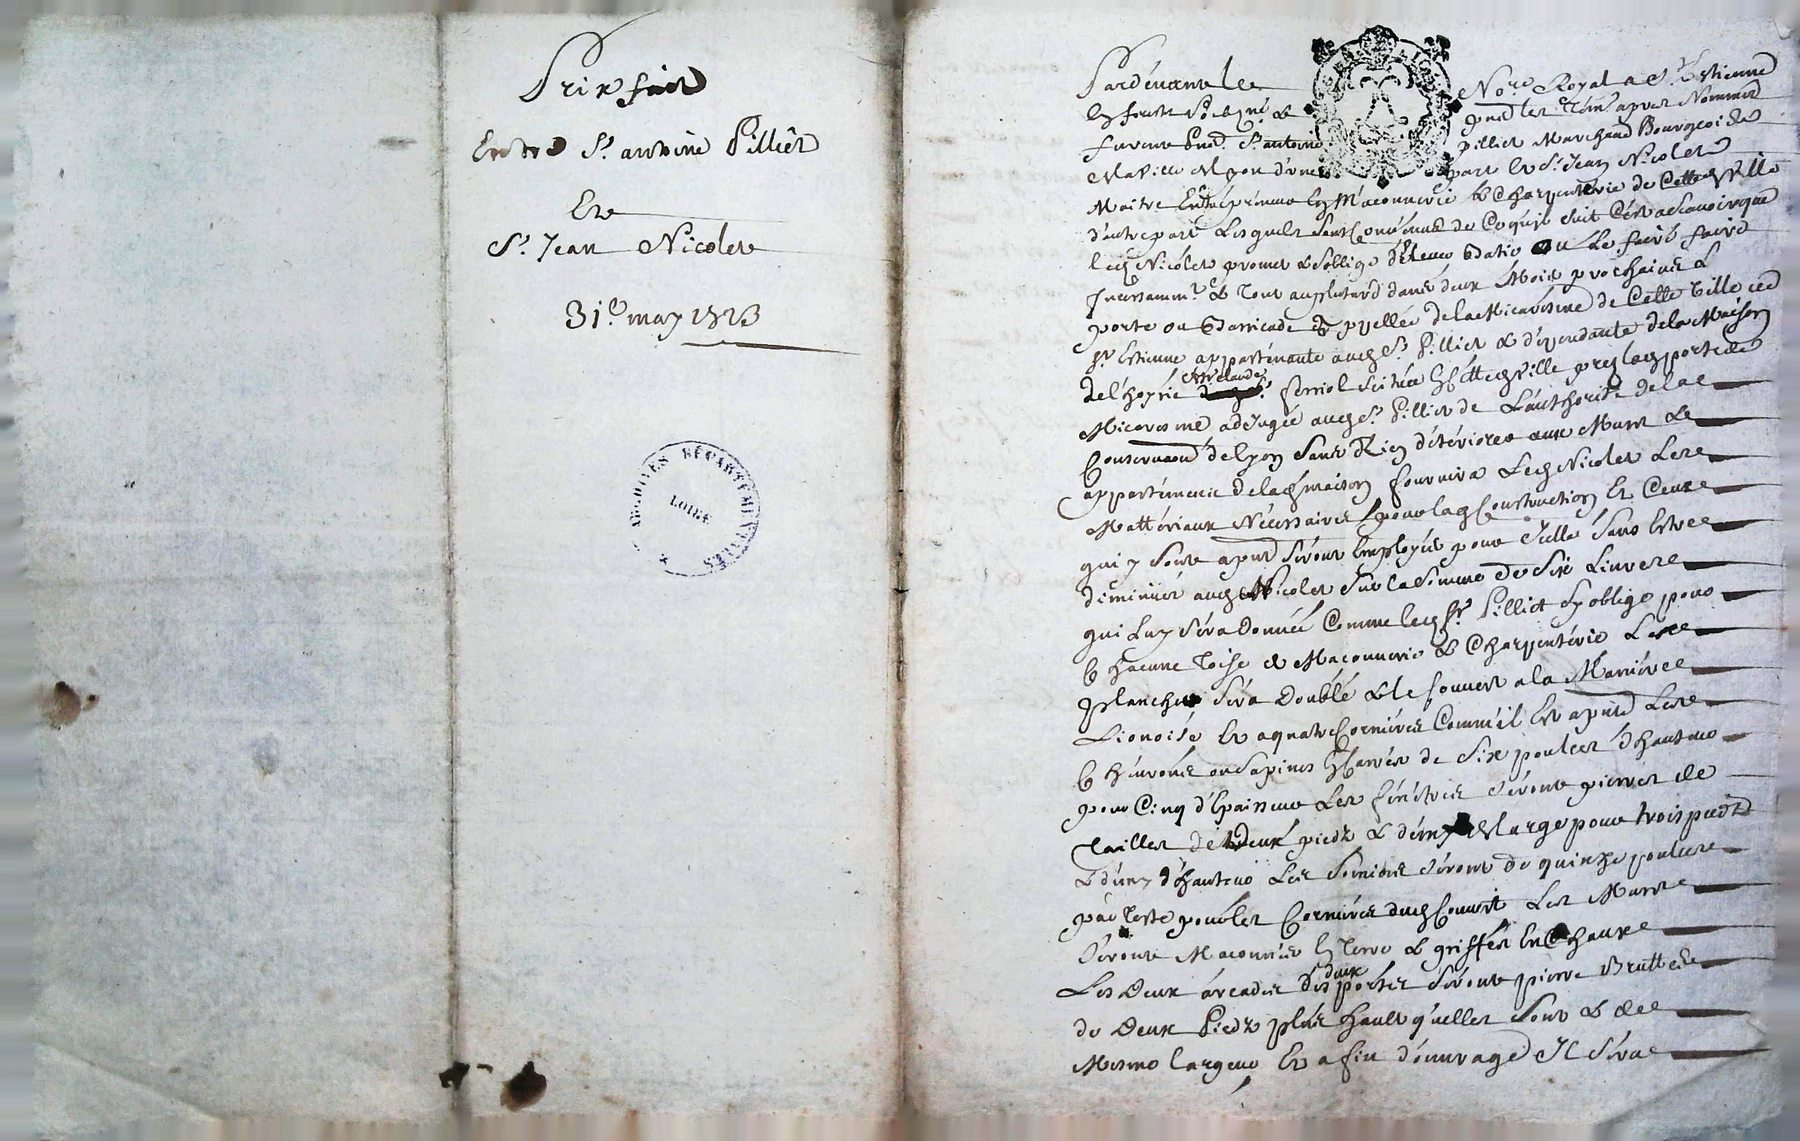 Prixfaict
Entre Sr. antoine Pilliét
Et
Sr. Jean Nicolet
31e. may 1723
ARCHIVES DÉPARTEMENTALES
LOIRE
Pardévant le Nore. Royal a St. Estienne
En forest soubzné & présd les témn apres Nommés
furent Présd. Sr. antoine pilliet Marchand Bourgeois de
la Ville de Lyon d'une part Et Sr. Jean Nicolet
Maitre Entréprénneur En Maconnerie & Charpenterie de Cette Ville
d'autre part Lesquels sont Convénus de Cequi suit C'ést a scavoir que
led Nicolet promet & soblige d'éléver Batir ou Le faire faire
Jncessamt. & tout auplutard dans deux Mois prochains
porte ou Barricade appéllée de la Micaresme de Cette Ville
St. Estienne appartenante aud Sr. Pilliet & dépendante de la Maison
de l'hoyrie de claude ferriol scituée En Cette Ville prés lad porte de
Micaresme adjugée aud Sr. Pilliet de L'authorité de la
Conservaon de Lyon sans Rien détériorer aux Murs &
appartements de lad maison fournira Led Nicolet Les
Mattériaux Nécessaires pour lad Construction Et Ceux
qui y sont a pnt séront Employés pour Jcelle sans Estre
diminués aud Nicolet sur la somme de Six Livres
qui Luy séra donnée Comme led Sr. Pilliet sy oblige pour
Chacune toise de Maconnerie & Charpenterie Les
planchers séra Doublé & le Couvert a la Maniére
Lionoise Et a quatre Cornières Comm'il Est a pnt Les
Chévrons ou sapines Esquarrés de Six poulces d'hauteur
pour Cinq d'épaisseur Les fénétres séront pierres de
tailles de deux pieds & démy de large pour trois pieds
& démy d'hauteur Les sommiers séront de quinze poulces
par teste pour les Cornières dud Couvert Les Murs
séront Maconnés En terre & griffés En Chaux
Les deux arcades des deux portes séront pierre Brutte
de deux Pieds plus hault quelles sont & de
Mesme largeur Et a fin d'ouvrage Il séra